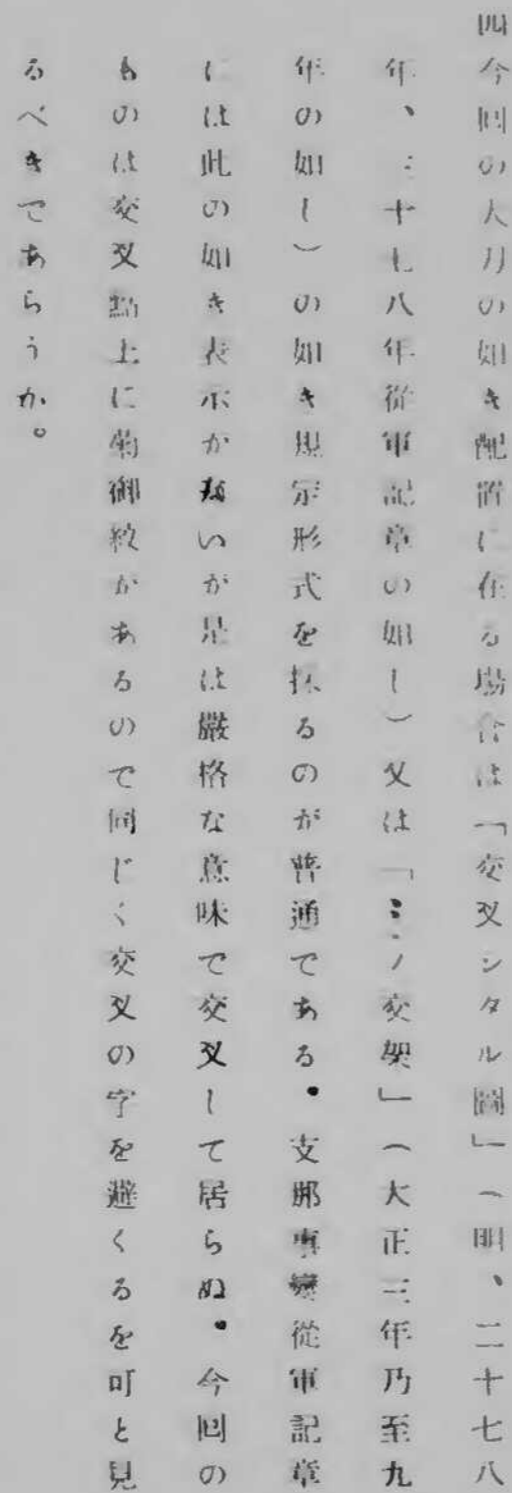 四今回の大刀の如き配置に在る場合は「交叉シタル圖」（明、二十七八
年、三十七八年從軍記章の如し）又は「ミ、ノ交架」（大正三年乃至九
年の如し）の如き規定形式を採るのが普通である。支那事變從軍記章
には此の如き表示がないが是は嚴格な意味で交叉して居らぬ。今回の
ものは交叉點上に菊御紋があるので同じく交叉の字を避くるを可と見
るべきであらうか。